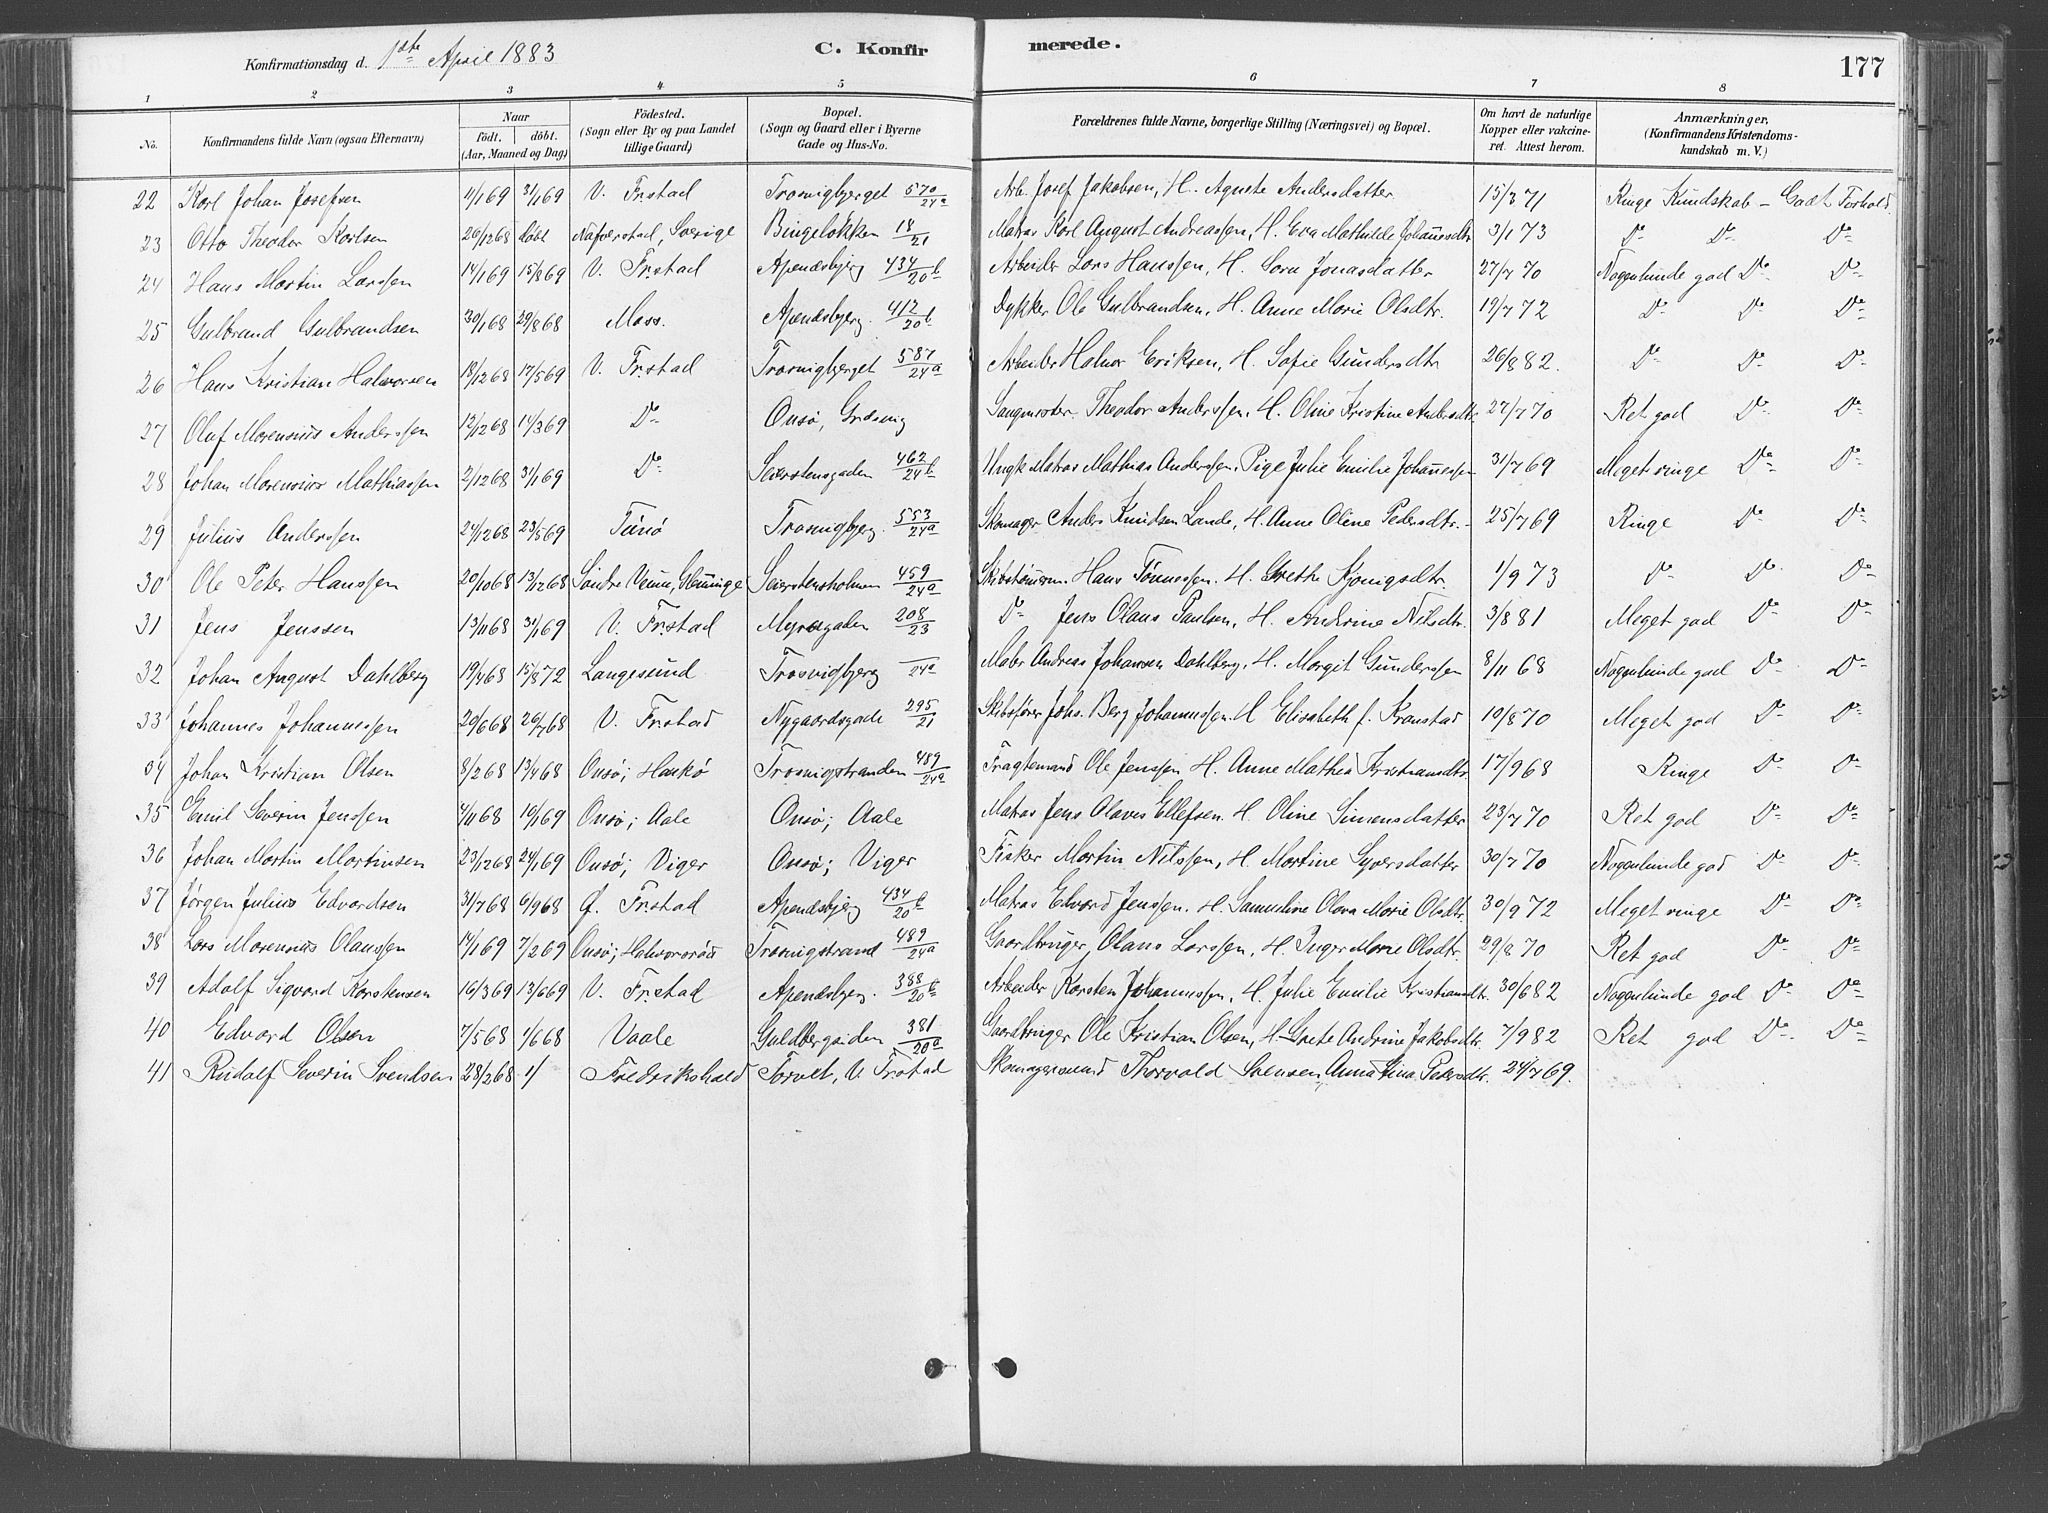 Konfirmationsdag d. 1ste April 1883 C. Konfirmerede. 177
1 2 3 4 5 6 7 8
No. Konfirmandens fulde Navn (ogsaa Efternavn) Naar födt. döbt. (Aar, Maaned og Dag) Födested. (Sogn eller By og paa Landet tillige Gaard) Bopæl. (Sogn og Gaard eller i Byerne Gade og Hus-No.) Forældrenes fulde Navne, borgerlige Stilling (Næringsvei) og Bopæl. Om havt de naturlige Kopper eller vakcineret. Attest herom. Anmærkninger, (Konfirmandens Kristendomskundskab m. V.)
22 Karl Johan Josefsen 4/1 69 31/1 69 V. Fr.stad Trosvigbjerget 570/24a Arb. Josef Jakobsen, H. Agnete Andersdatter 15/3 71 Ringe Kundskab – Godt Forhold
23 Otto Theodor Karlsen 26/12 68 döbt Näfverstad, Sverige Bingeløkken 18/21 Matros Karl August Andreassen, H. Eva Mathilde Johannesdtr 3/1 73 Do Do Do
24 Hans Martin Larssen 14/1 69 15/8 69 V. Fr.stad Apenæsbjerg 434/20b Arbeider Lars Hanssen, H. Sora Jonasdatter 27/7 70 Nogenlunde god Do Do
25 Gulbrand Gulbrandsen 30/1 68 29/8 68 Moss. Apenæsbjerg. 412/20b Dykker Ole Gulbrandsen, H. Anne Marie Olsdtr. 19/7 72 Do Do Do
26 Hans Kristian Halvorsen 18/12 68 17/5 69 V. Fr.stad Trosvigbjerget 587/24a Arbeider Halvor Eriksen, H. Sofie Gundersdtr 26/8 82. Do Do Do
27 Oluf Morensius Anderssen 12/12 68 14/3 69 Do Onsø, Græsvig Saugmester Theodor Anderssen, H. Oline Kristine Andersdtr. 27/7 70 Ret god Do Do
28 Johan Morensius Mathiassen 2/12 68 31/1 69 Do Seierstensgaden 462/24b Ungk. Matros Mathias Anderssen, Pige Julie Emilie Johannessen 31/7 69 Meget ringe Do Do
29 Julius Anderssen 24/12 68 23/5 69 Tunø Trosvigbjerg. 553/24a Skomager Anders Knudsen Lande, H. Anne Oline Pedersdtr. 25/7 69 Ringe Do Do
30 Ole Peter Hanssen 20/10 68 13/12 68 Söndre Veum, Glemminge Seierstensholmen 459/24a Skibstømrm. Hans Tønnessen. H. Grethe Kjønigsdtr. 1/9 73 Do Do Do
31 Jens Jenssen 13/11 68 31/1 69 V. Fr.stad Myragaden 208/23 Do Jens Olaus Paulsen, H. Andrine Nilsdtr. 3/8 81 Meget god Do Do
32 Johan August Dahlberg 19/4 68 15/8 72 Langesund Trosvigbjerg —/24a Maler Andreas Johansen Dahlberg, H. Margit Gunderssen 8/11 68 Nogenlunde god Do Do
33 Johannes Johannessen 29/6 68 26/7 68 V. Fr.stad Nygaardsgade 295/21 Skibsfører Johs. Berg Johannessen. H Elisabeth f. Kranstad 10/8 70 Meget god Do Do
34 Johan Kristian Olsen 8/2 68 13/4 68 Onsø; Hankø Trosvigstranden 489/24a Fragtemand Ole Jenssen H. Anne Mathea Kristiansdtr 17/9 68 Ringe Do Do
35 Emil Severin Jenssen 4/11 68 10/1 69 Onsø; Aale Onsø; Aale Matros Jens Olaves Ellefsen. H. Oline Simensdatter 23/7 70 Ret god Do Do
36 Johan Martin Martinsen 23/12 68 24/1 69 Onsø; Viger Onsø; Viger Fisker Martin Nilssen, H. Martine Syversdatter 30/7 70 Nogenlunde god Do Do
37 Jørgen Julius Edvardsen 31/7 68 6/9 68 Ø. Fr.stad Apenæsbjerg 434/20b Matros Edvard Jenssen. H. Samueline Olava Marie Olsdtr. 30/9 72 Meget ringe Do Do
38 Lars Morensius Olaussen 14/1 69 7/2 69 Onsø; Halvorsröd Trosvigstrand 489/24a Gaardbruger, Olaus Larssen, H. Inger Marie Olsdtr. 29/8 70 Ret god Do Do
39 Adolf Sigvard Karstensen 16/3 69 13/6 69 V. Fr.stad Apenæsbjerg. 388/20b Arbeider Karsten Johannessen, H. Julie Emilie Kristiansdtr. 30/6 82 Nogenlunde god Do Do
40 Edvard Olsen 7/5 68 1/6 68 Vaale Guldbergsiden 381/20a Gaardbruger Ole Kristian Olsen, H. Grete Andrine Jakobsdtr. 7/9 82 Ret god Do Do
41 Rudolf Severin Svendsen 28/2 68 1/ Fredrikshald Torvet, V. Frstad Skomagersvend Thorvald Svensen, Anna Lina Pedersdtr. 24/7 69.